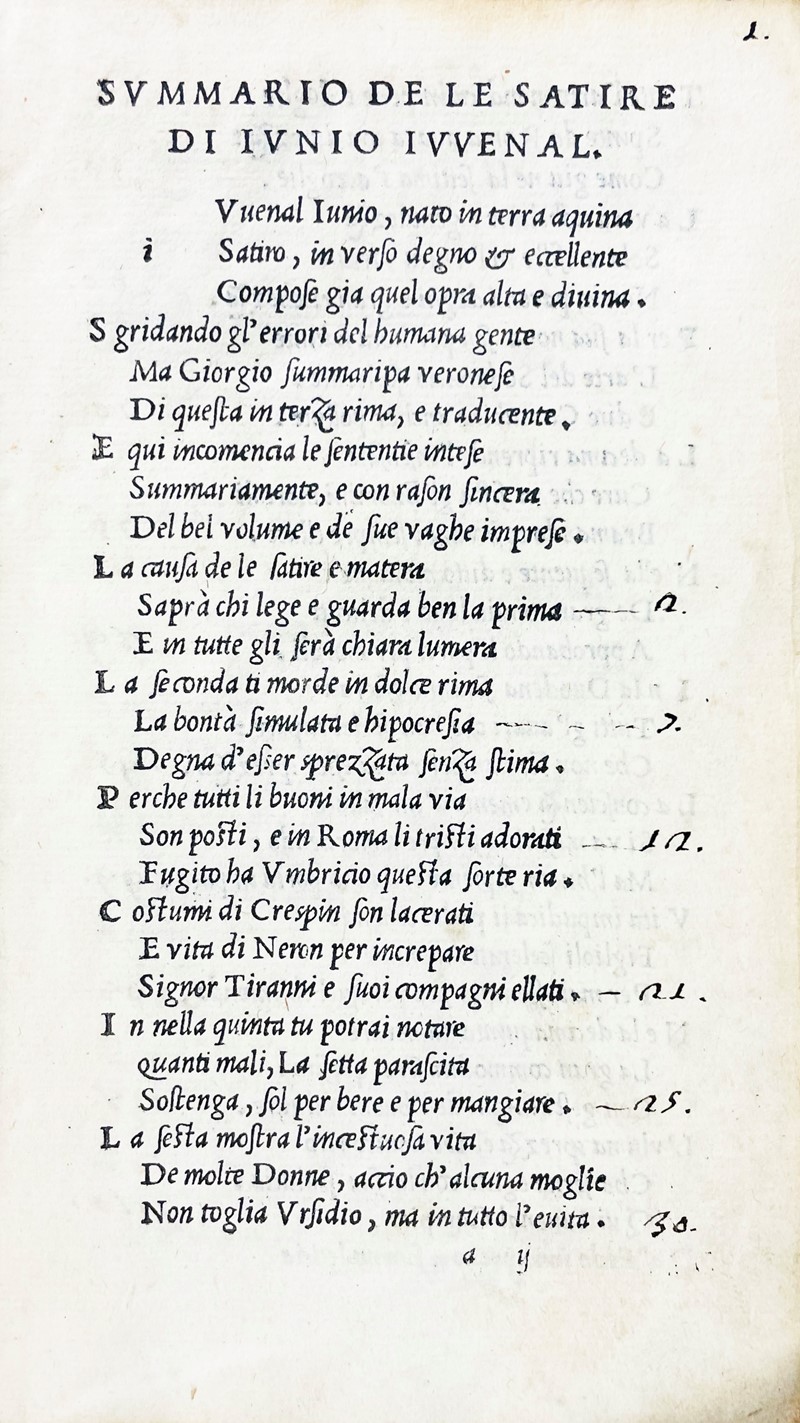 1.
SVMMARIO DE LE SATIRE
DI IVNIO IVVENAL.
Vuenal Iunio, nato in terra aquina
i Satiro, in verſo degno & eccellente
Compoſe gia quel opra alta e diuina.
S gridando gl'errori del humana gente
Ma Giorgio ſummaripa veroneſe
Di queſta in terza rima, e traducente.
E qui incomencia le ſententie inteſe
Summariamente, e con raſon ſincera
Del bel volume e de ſue vaghe impreſe.
L a cauſa de le ſatire e matera
Saprà chi lege e guarda ben la prima — 2.
E in tutte gli ſerà chiara lumera
L a ſeconda ti morde in dolce rima
La bontà ſimulata e hipocreſia — - - 7.
Degna d'eſſer sprezzata ſenza ſtima.
P erche tutti li buoni in mala via
Son poſti, e in Roma li triſti adorati — 12.
Fugito ha Vmbricio queſta ſorte ria.
C oſtumi di Crespin ſon lacerati
E vita di Neron per increpare
Signor Tiranni e ſuoi compagni ellati. — 21.
I n nella quinta tu potrai notare
Quanti mali, La ſetta paraſcita
Soſtenga, ſol per bere e per mangiare. — 25.
L a ſeſta moſtra l'inceſtuoſa vita
De molte Donne, accio ch'alcuna moglie
Non toglia Vrſidio, ma in tutto l'euita. 30.
a ij